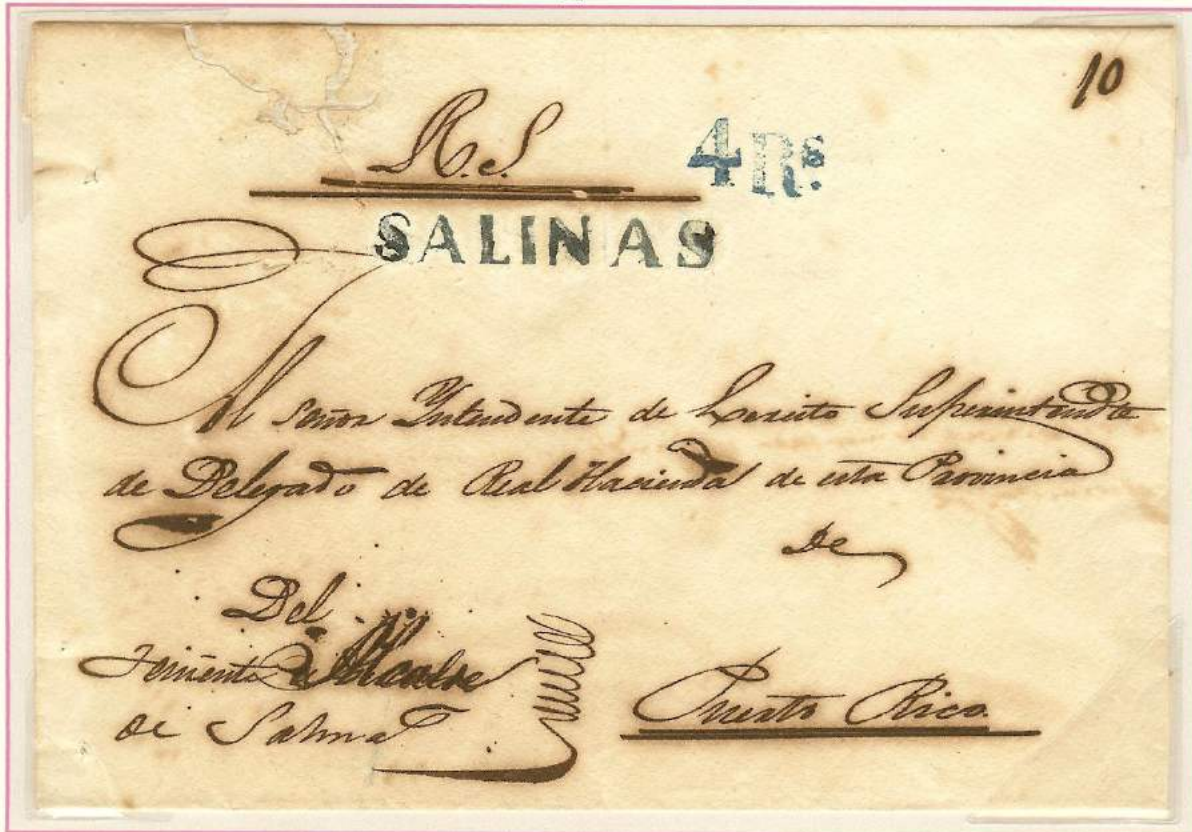 10
R.S.
4Rs.
SALINAS
Al Señor Yntendente de Exercito Superintend
de Delegado de Real Hacienda de esta Provincia
de
Del
Teniente Alcalde
de Salinas
Puerto Rico.